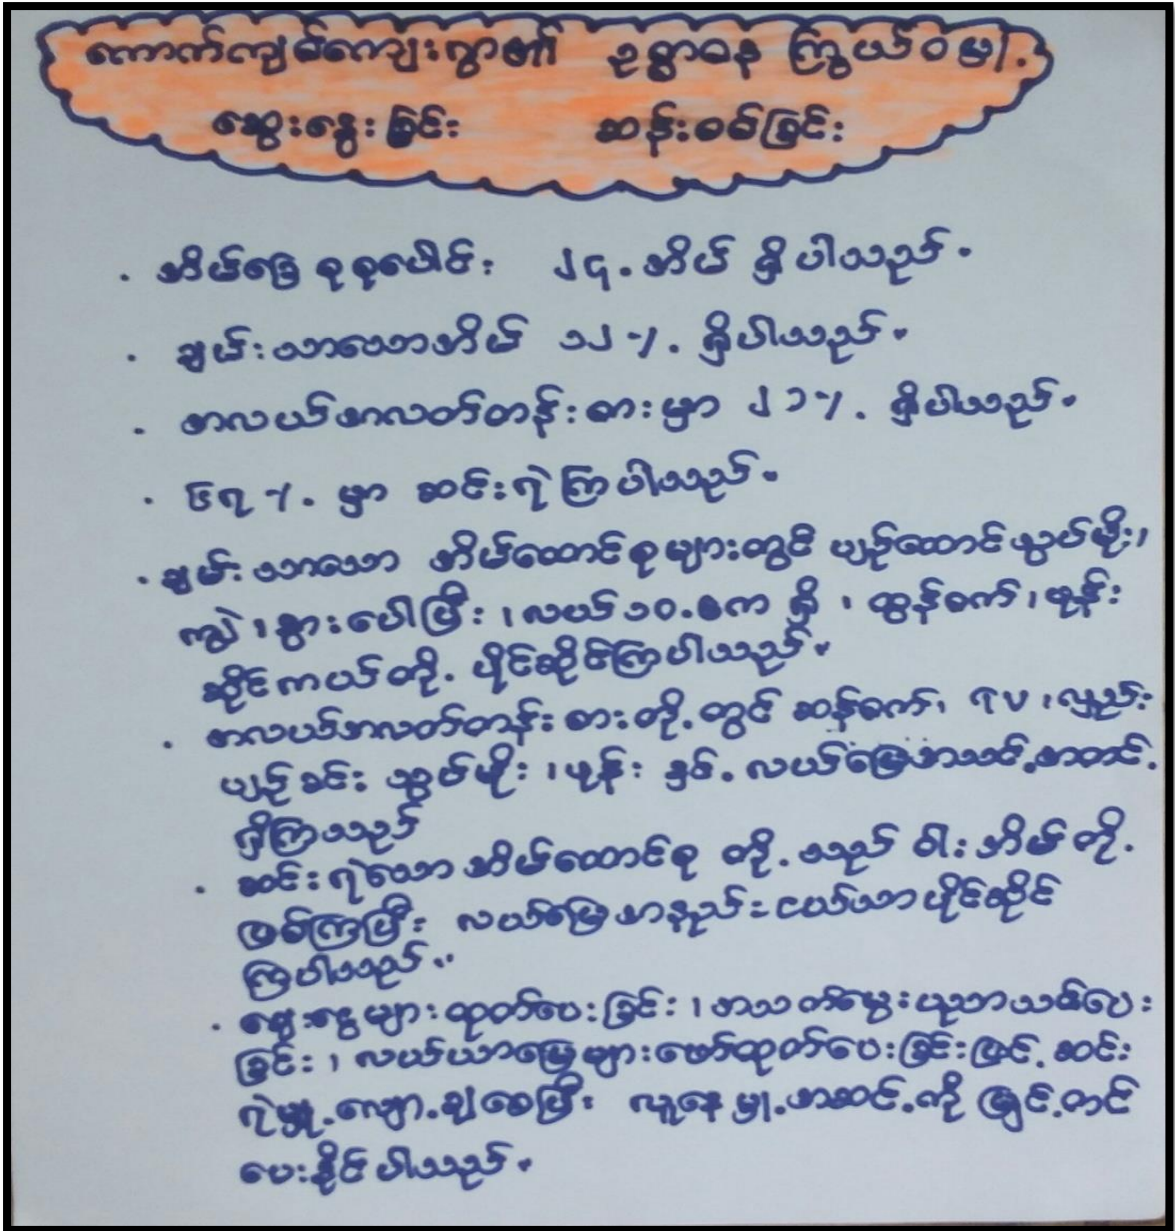 ကောက်ကျစ်ကျေးရွာ၏ ဥစ္စာဓန ကြွယ်ဝမှု့
ဆွေးနွေးခြင်း ဆန်းစစ်ခြင်း
. အိမ်ခြေ စုစုပေါင်း ၂၄.အိမ် ရှိပါသည်။
. ချမ်းသာသောအိမ် ၁၂ % ရှိပါသည်။
. အလယ်အလတ်တန်းစားမှာ ၂၁% ရှိပါသည်။
. ၆၇ % မှာ ဆင်းရဲကြပါသည်။
. ချမ်းသာသော အိမ်ထောင်စုများတွင် ပျဉ်ထောင်သွပ်မိုး၊
ကျွဲ၊ နွားပေါပြီး၊ လယ်၁၀.ဧက ရှိ ၊ ထွန်စက်၊ ဖုန်း
ဆိုင်ကယ်တို့ ပိုင်ဆိုင်ကြပါသည်။
. အလယ်အလတ်တန်းစားတို့တွင် ဆန်စက်၊ TV ၊လှည်း
ပျဉ်ခင်း သွပ်မိုး ၊ဖုန်း နှင့် လယ်မြေအသင့်အတင့်
ရှိကြသည်
. ဆင်းရဲသော အိမ်ထောင်စု တို့သည် ဝါးအိမ်တို့
ဖြစ်ကြပြီး လယ်မြေအနည်းငယ်သာ ပိုင်ဆိုင်
ကြပါသည်။
. ချေးငွေများထုတ်ပေးခြင်း၊ အသက်မွေးပညာသင်ပေး
ခြင်း၊ လယ်ယာမြေများဖော်ထုတ်ပေးခြင်းဖြင့် ဆင်း
ရဲမှု့လျော့ချစေပြီး လူနေမှု့အဆင့်ကို မြှင့်တင်
ပေးနိုင်ပါသည်။